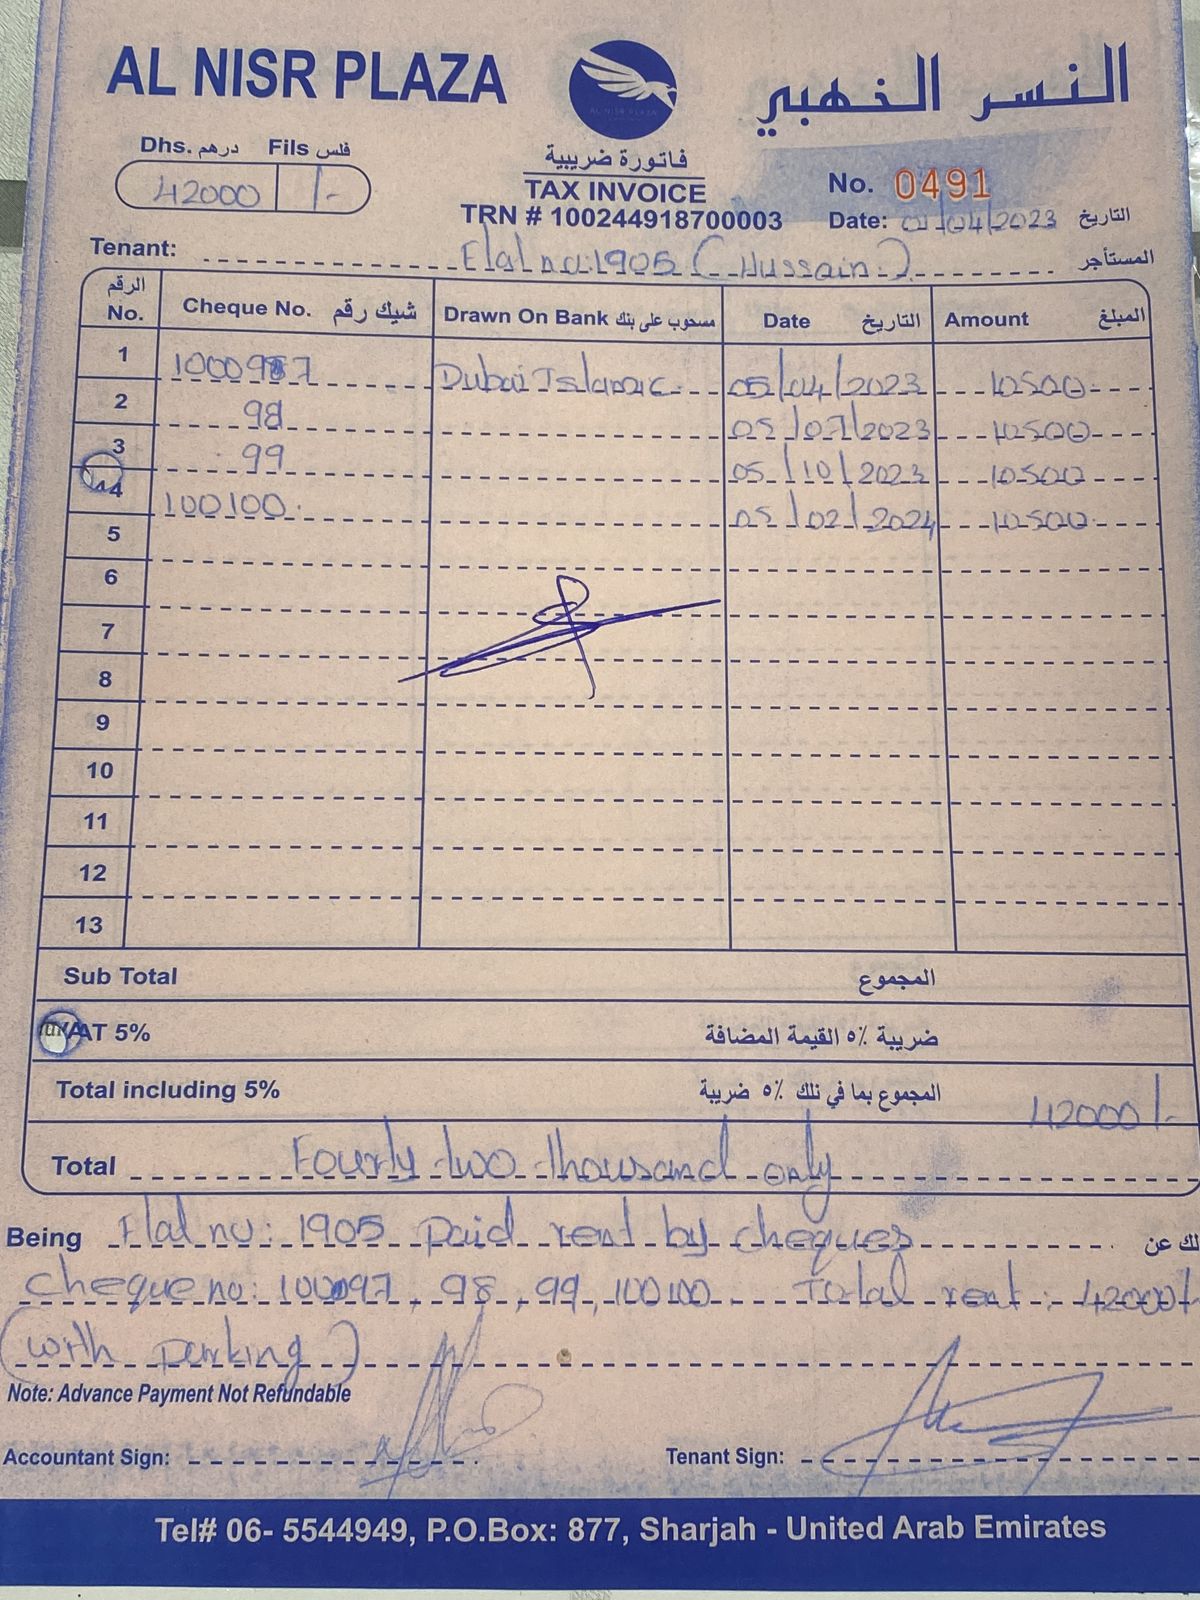 AL NISR PLAZA
النسر الذهبي
AL NISR PLAZA
Dhs. درهم Fils فلس
42000 /-
فاتورة ضريبية
TAX INVOICE
TRN # 100244918700003
No. 0491
Date: 01/04/2023 التاريخ
Tenant: Flat no:1905 (Hussain) المستأجر
الرقم No. Cheque No. شيك رقم Drawn On Bank مسحوب على بنك Date التاريخ Amount المبلغ
1 1000987 Dubai Islamic 05/04/2023 10500
2 98 05/07/2023 10500
3 99 05/10/2023 10500
4 100100 05/02/2024 10500
5
6
7
8
9
10
11
12
13
Sub Total المجموع
VAT 5% ضريبة ٥٪ القيمة المضافة
Total including 5% المجموع بما في تلك ٥٪ ضريبة 42000/-
Total Fourty two thousand only
Being Flat no: 1905 paid rent by cheques لك عن
cheque no: 100097, 98, 99, 100100 Total rent: 42000/-
(with parking)
Note: Advance Payment Not Refundable
Accountant Sign: Tenant Sign:
Tel# 06- 5544949, P.O.Box: 877, Sharjah - United Arab Emirates